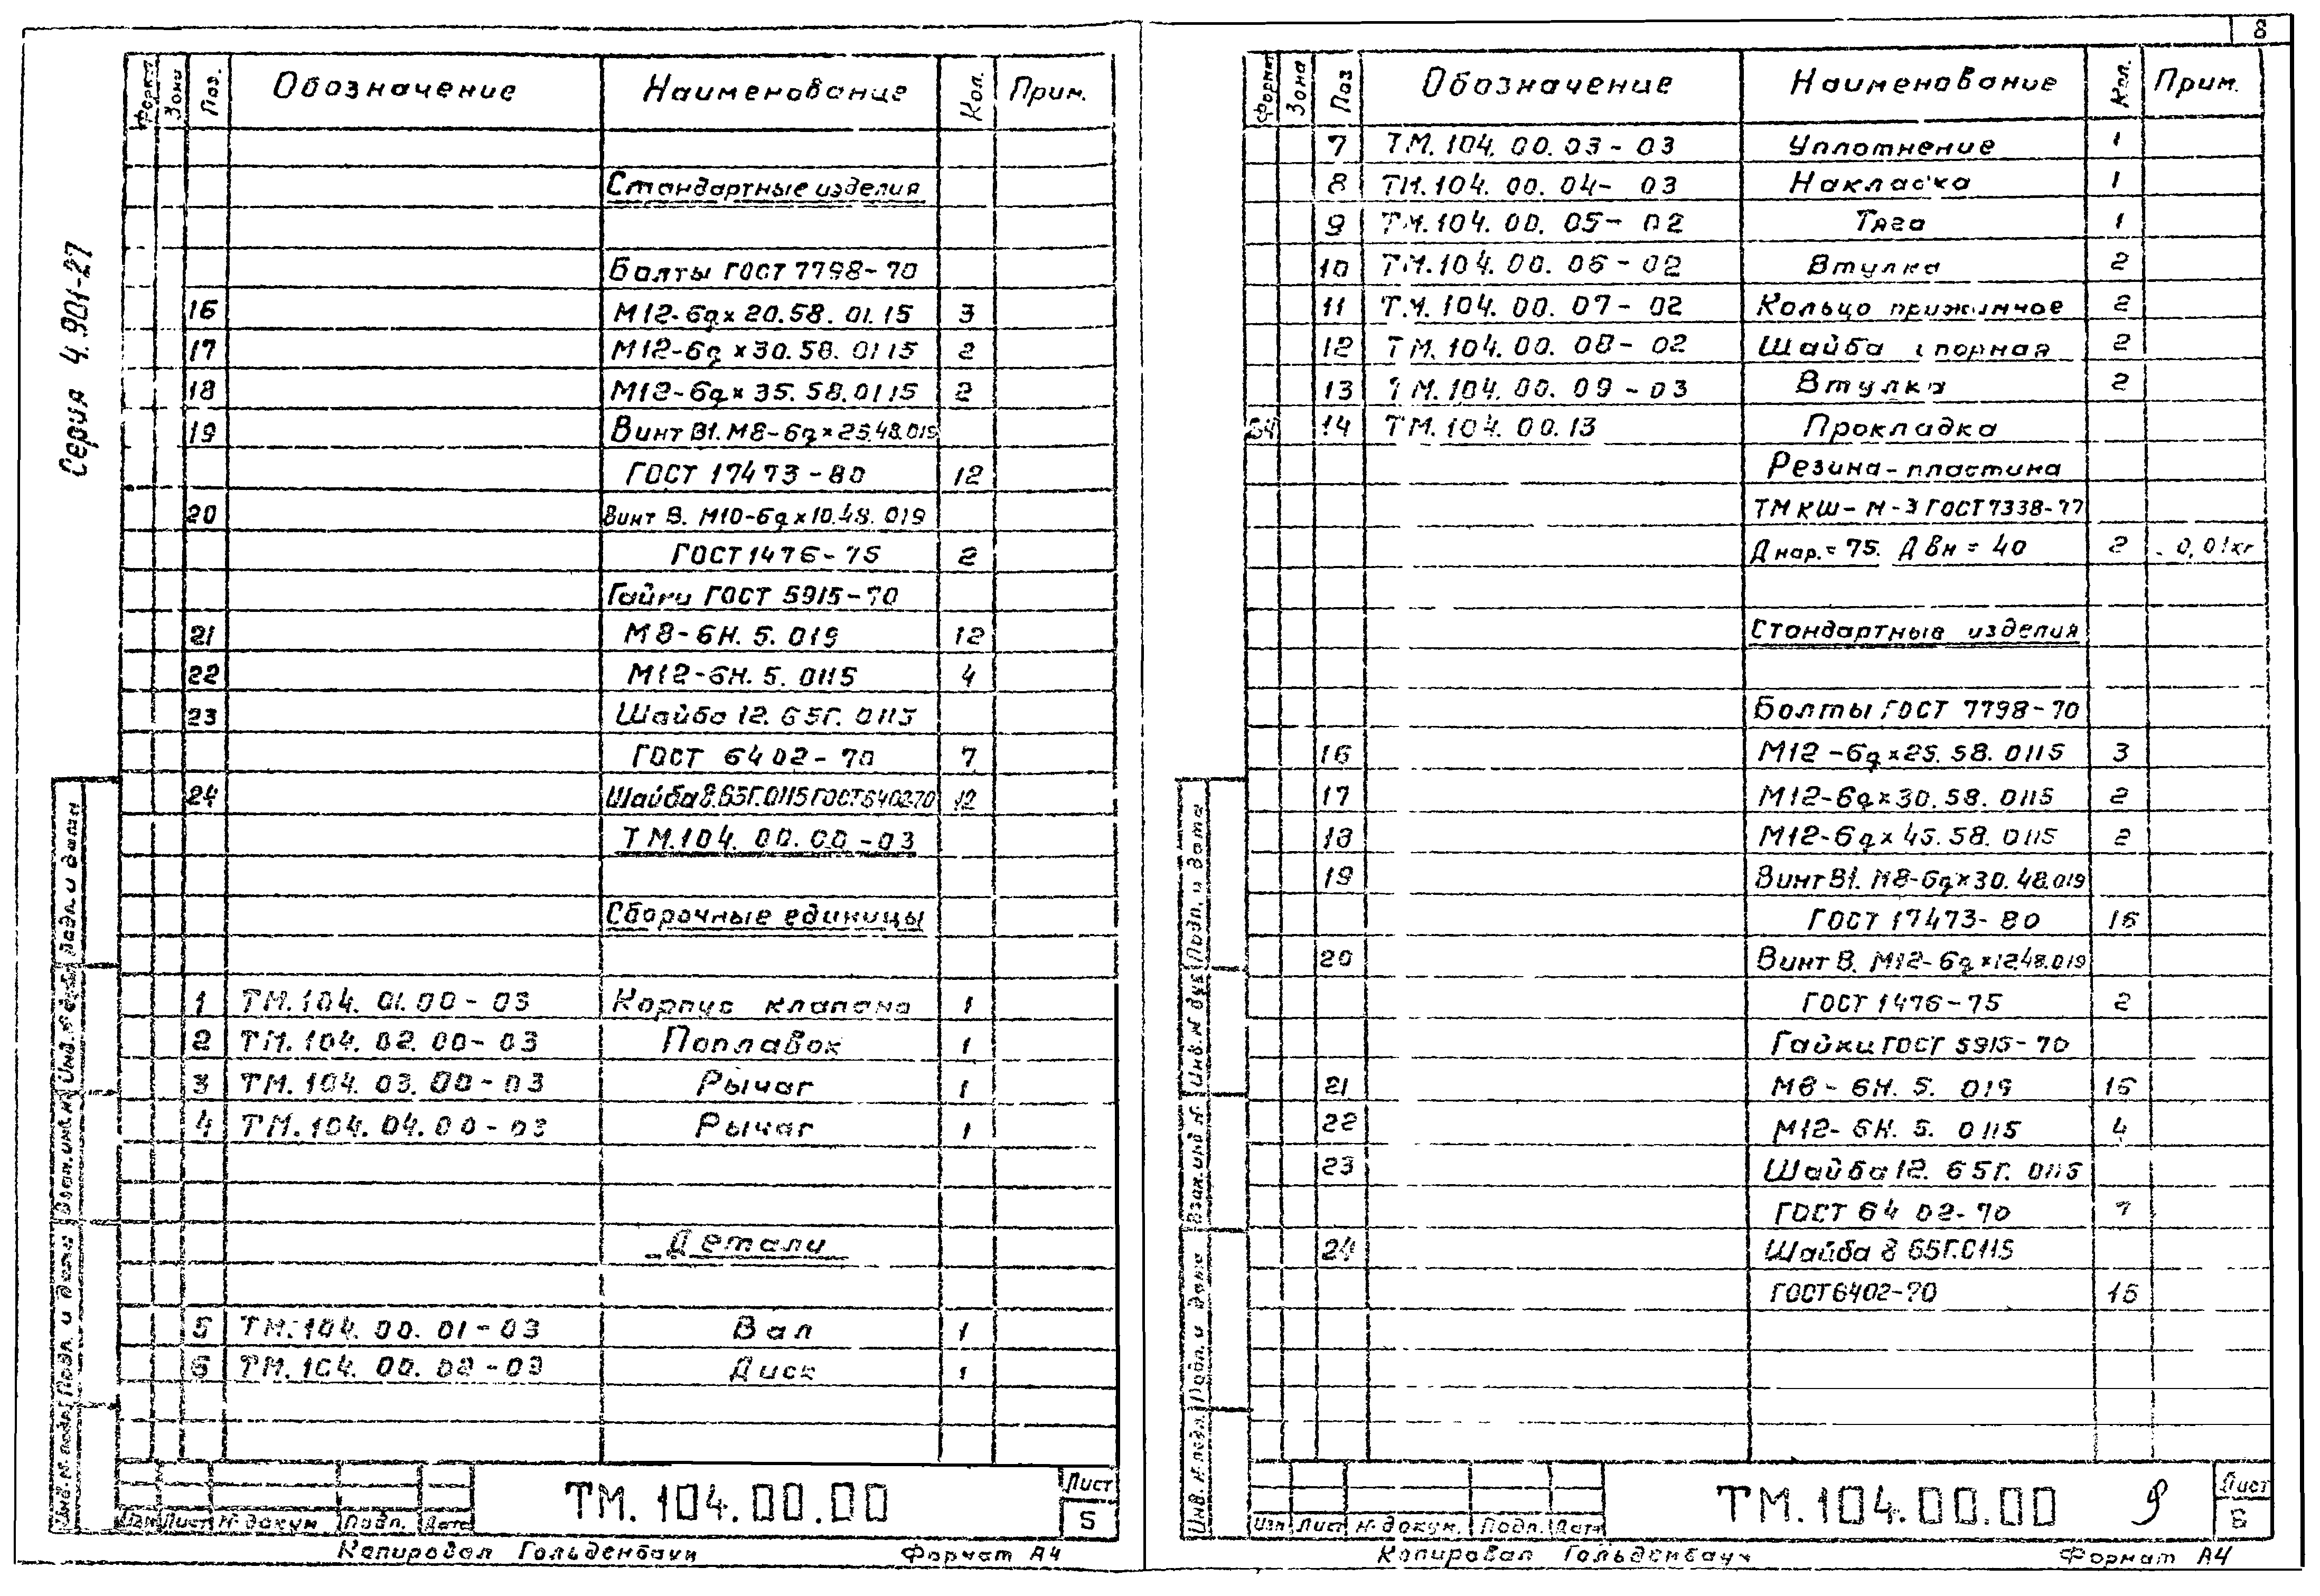 8
Серия 4.901-27
Формат Зона Поз. Обозначение Наименование Кол. Прим.
Стандартные изделия
Болты ГОСТ 7798-70
16 М12-6q×20.58.01.15 3
17 М12-6q×30.58.0115 2
18 М12-6q×35.58.0115 2
19 Винт В1.М8-6q×25.48.019
ГОСТ 17473-80 12
20 Винт В. М10-6q×10.48.019
ГОСТ 1476-75 2
Гайки ГОСТ 5915-70
21 М8-6Н.5.019 12
22 М12-6Н.5.0115 4
23 Шайба 12.65Г.0115
ГОСТ 6402-70 7
24 Шайба 8.65Г.0115 ГОСТ 6402-70 12
ТМ.104.00.00-03
Сборочные единицы
1 ТМ.104.01.00-03 Корпус клапана 1
2 ТМ.104.02.00-03 Поплавок 1
3 ТМ.104.03.00-03 Рычаг 1
4 ТМ.104.04.00-03 Рычаг 1
Детали
5 ТМ.104.00.01-03 Вал 1
6 ТМ.104.00.02-03 Диск 1
Инв. N подл. Подп. и дата Взам. инв. N Инв. N дубл. Подп. и дата
Изм Лист N докум. Подп. Дата
ТМ.104.00.00
Лист
5
Копировал Гольденбаум Формат А4
Формат Зона Поз Обозначение Наименование Кол. Прим.
7 ТМ.104.00.03-03 Уплотнение 1
8 ТМ.104.00.04-03 Накладка 1
9 ТМ.104.00.05-02 Тяга 1
10 ТМ.104.00.06-02 Втулка 2
11 ТМ.104.00.07-02 Кольцо прижимное 2
12 ТМ.104.00.08-02 Шайба опорная 2
13 ТМ.104.00.09-03 Втулка 2
14 ТМ.104.00.13 Прокладка
Резина-пластина
ТМКЩ-М-3 ГОСТ 7338-77
Днар.=75. Двн=40 2 0,01кг
Стандартные изделия
Болты ГОСТ 7798-70
16 М12-6q×25.58.0115 3
17 М12-6q×30.58.0115 2
18 М12-6q×45.58.0115 2
19 Винт В1.М8-6q×30.48.019
ГОСТ 17473-80 16
20 Винт В. М12-6q×12.48.019
ГОСТ 1476-75 2
Гайки ГОСТ 5915-70
21 М8-6Н.5.019 16
22 М12-6Н.5.0115 4
23 Шайба 12.65Г.0115
ГОСТ 6402-70 7
24 Шайба 8 65Г.0115
ГОСТ 6402-70 16
Инв. N подл. Подп. и дата Взам. инв. N Инв. N дубл Подп. и дата
Изм Лист N докум. Подп. Дата
ТМ.104.00.00
9
Лист
6
Копировал Гольденбаум Формат А4